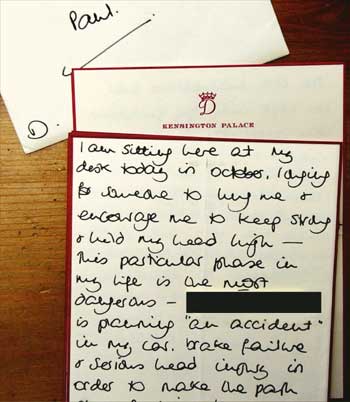 Paul.
D.
D
KENSINGTON PALACE
I am sitting here at my
desk today in october, longing
for someone to hug me &
encourage me to keep strong
& hold my head high –
this particular phase in
my life is the most
dangerous –
is planning "an accident"
in my car. brake failure
& serious head injury in
order to make the path